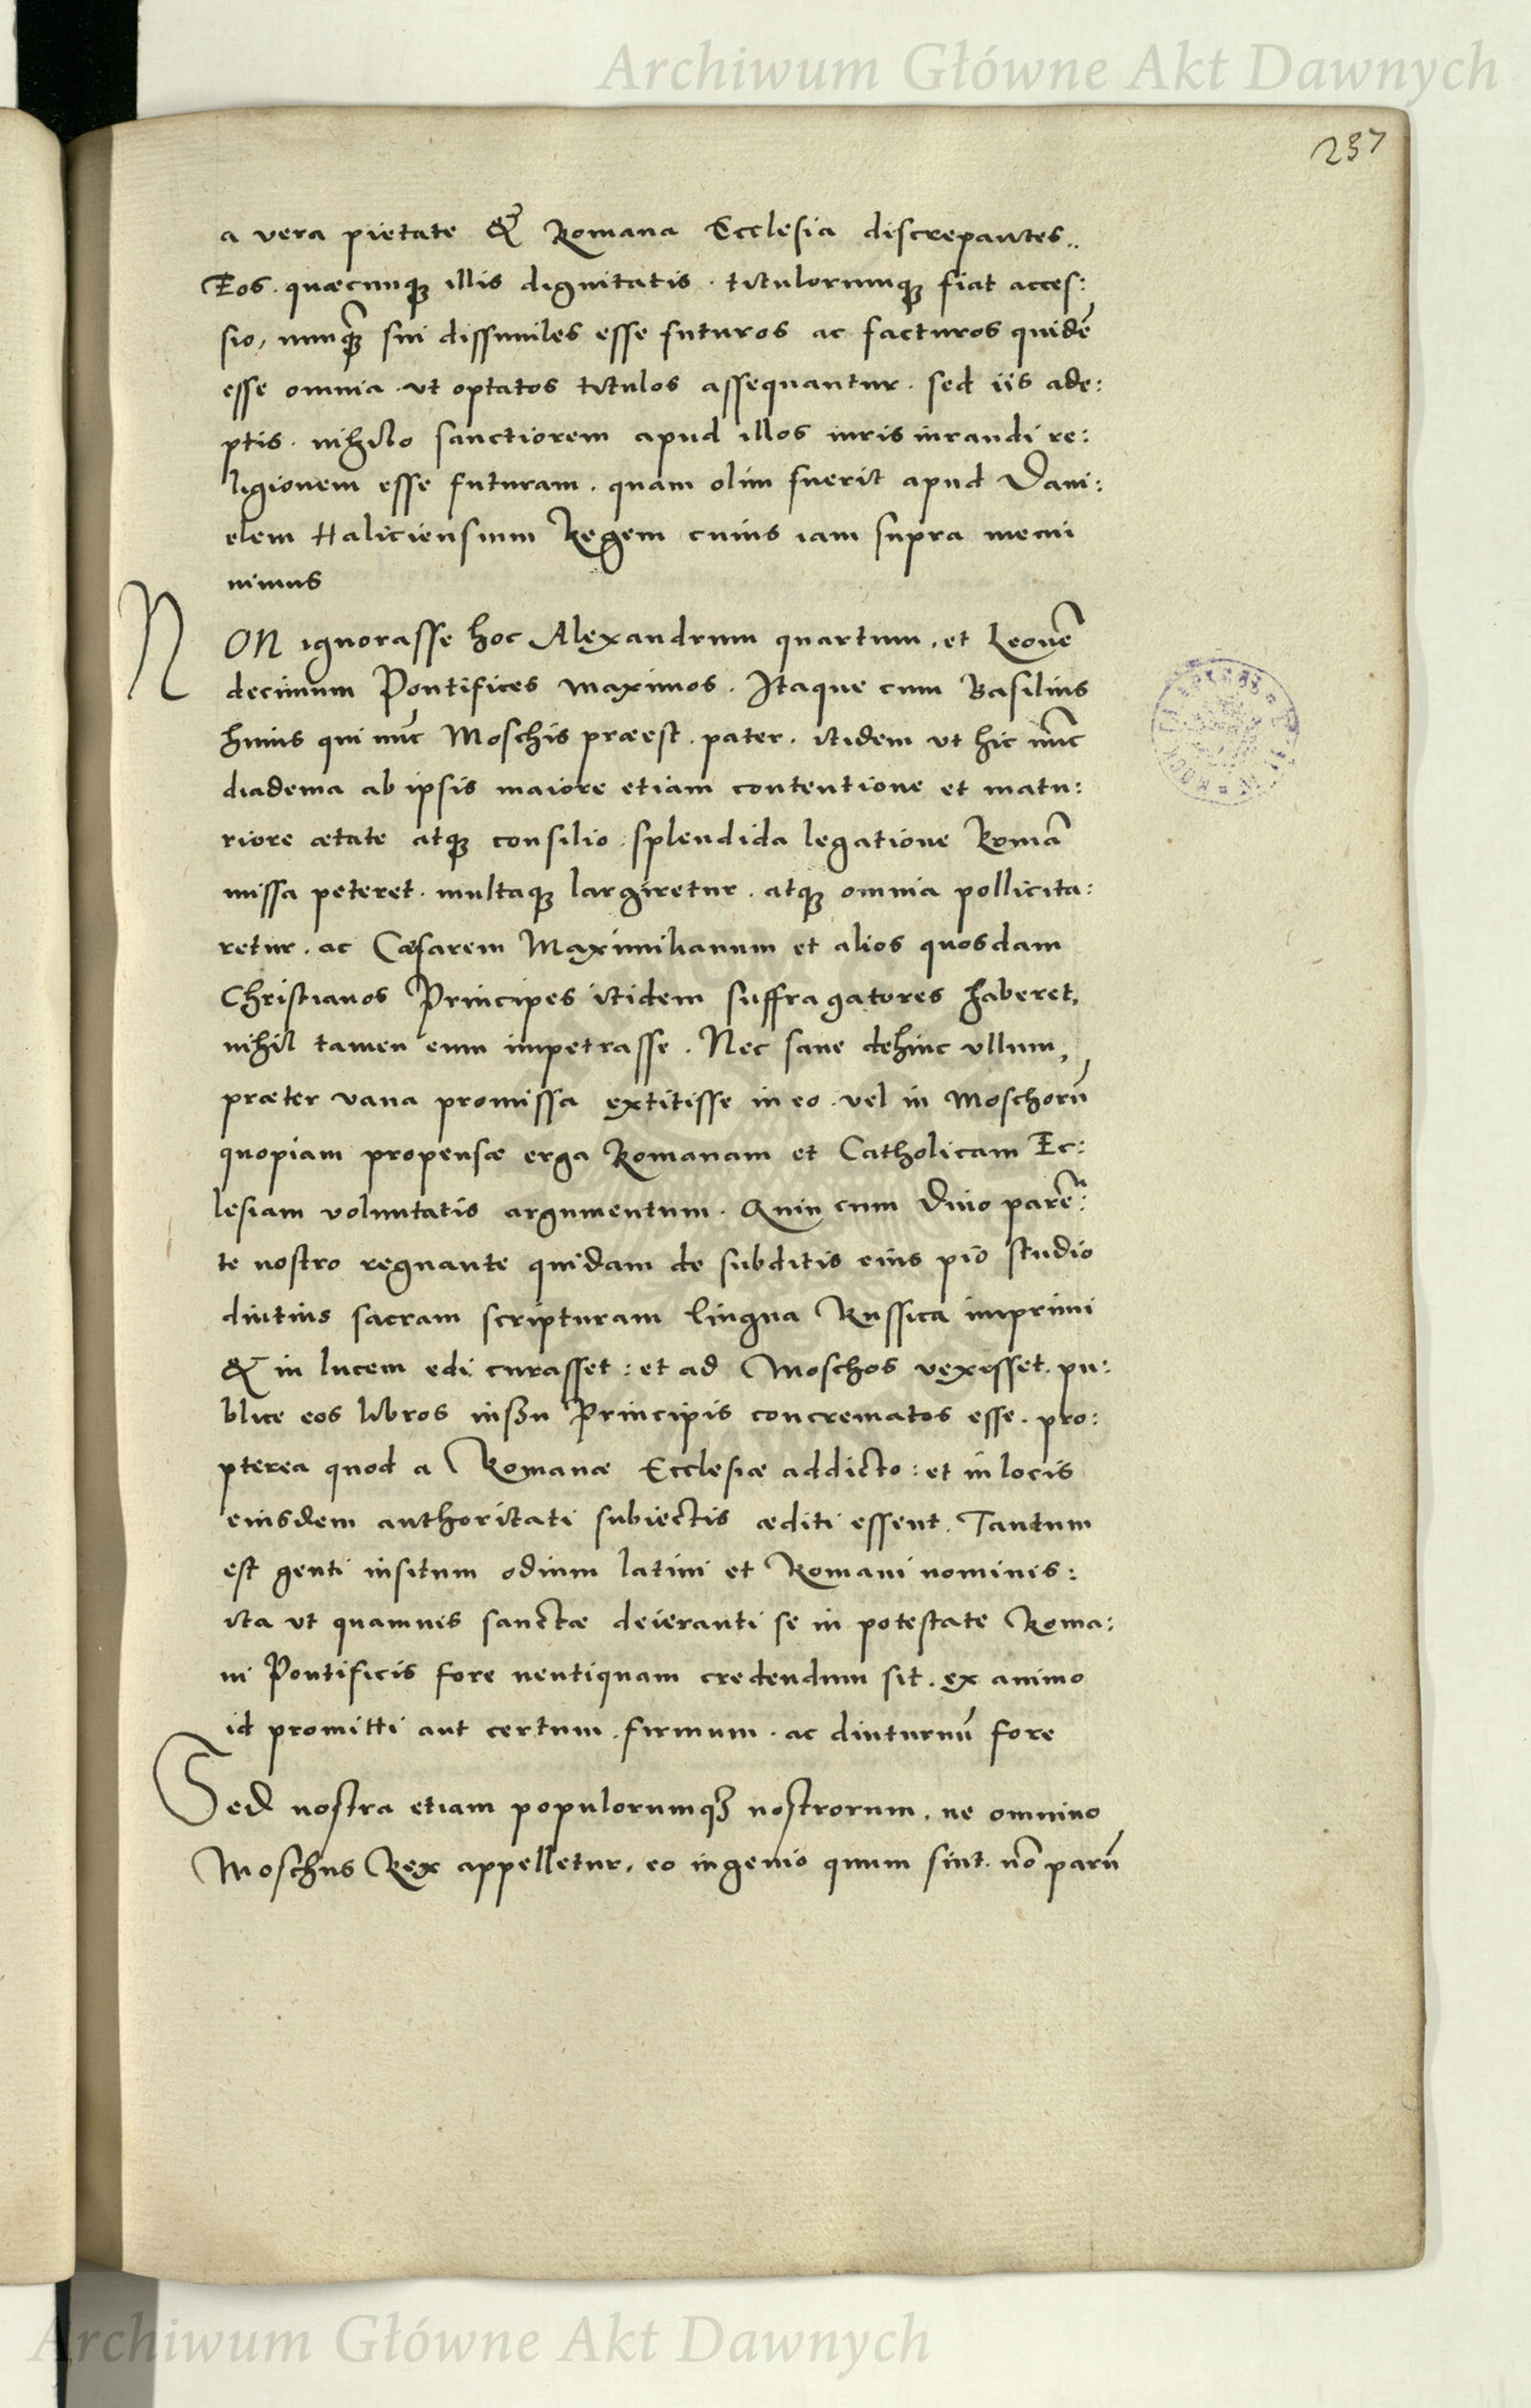 Archiwum Główne Akt Dawnych
237
a vera pietate & Romana Ecclesia discrepantes..
Eos. quæcunq illis dignitatis. titulorumq fiat acces:
sio, nunq̃ sui dissimiles esse futuros ac facturos quidē
esse omnia. ut optatos titulos assequantur. sed iis ade:
ptis. nihilo sanctiorem apud illos iuris iurandi re:
ligionem esse futuram. quam olim fuerit apud Dani:
elem Haliciensium Regem cuius iam supra memi
nimus
NON ignorasse hoc Alexandrum quartum. et Leonē
decimum Pontifices maximos. Itaque cum Basilius
huius qui nūc Moschis præest. pater. itidem ut hic nūc
diadema ab ipsis maiore etiam contentione et matu:
riore ætate atq consilio. splendida legatione Romā
missa peteret. multaq largiretur. atq omnia pollicita:
retur. ac Cæsarem Maximilianum et alios quosdam
Christianos Principes itidem suffragatores haberet,
nihil tamen eum impetrasse. Nec sane dehinc ullum,
præter vana promissa extitisse in eo. vel in Moschorū
quopiam propensæ erga Romanam et Catholicam Ec:
lesiam voluntatis argumentum. Quin cum Divo parē:
te nostro regnante quidam de subditis eius pio studio
ductus sacram scripturam lingua Russica imprimi
& in lucem edi curasset: et ad Moschos vexisset. pu:
blice eos libros iussu Principis concrematos esse. pro:
pterea quod a Romanæ Ecclesiæ addicto: et in locis
eiusdem authoritati subiectis æditi essent. Tantum
est genti insitum odium latini et Romani nominis:
ita ut quamvis sanctæ deieranti se in potestate Roma:
ni Pontificis fore neutiquam credendum sit. ex animo
id promitti aut certum. firmum. ac diuturnū fore
Sed nostra etiam populorumq nostrorum. ne omnino
Moschus Rex appelletur. eo ingenio quum sint. nō parū
Archiwum Główne Akt Dawnych